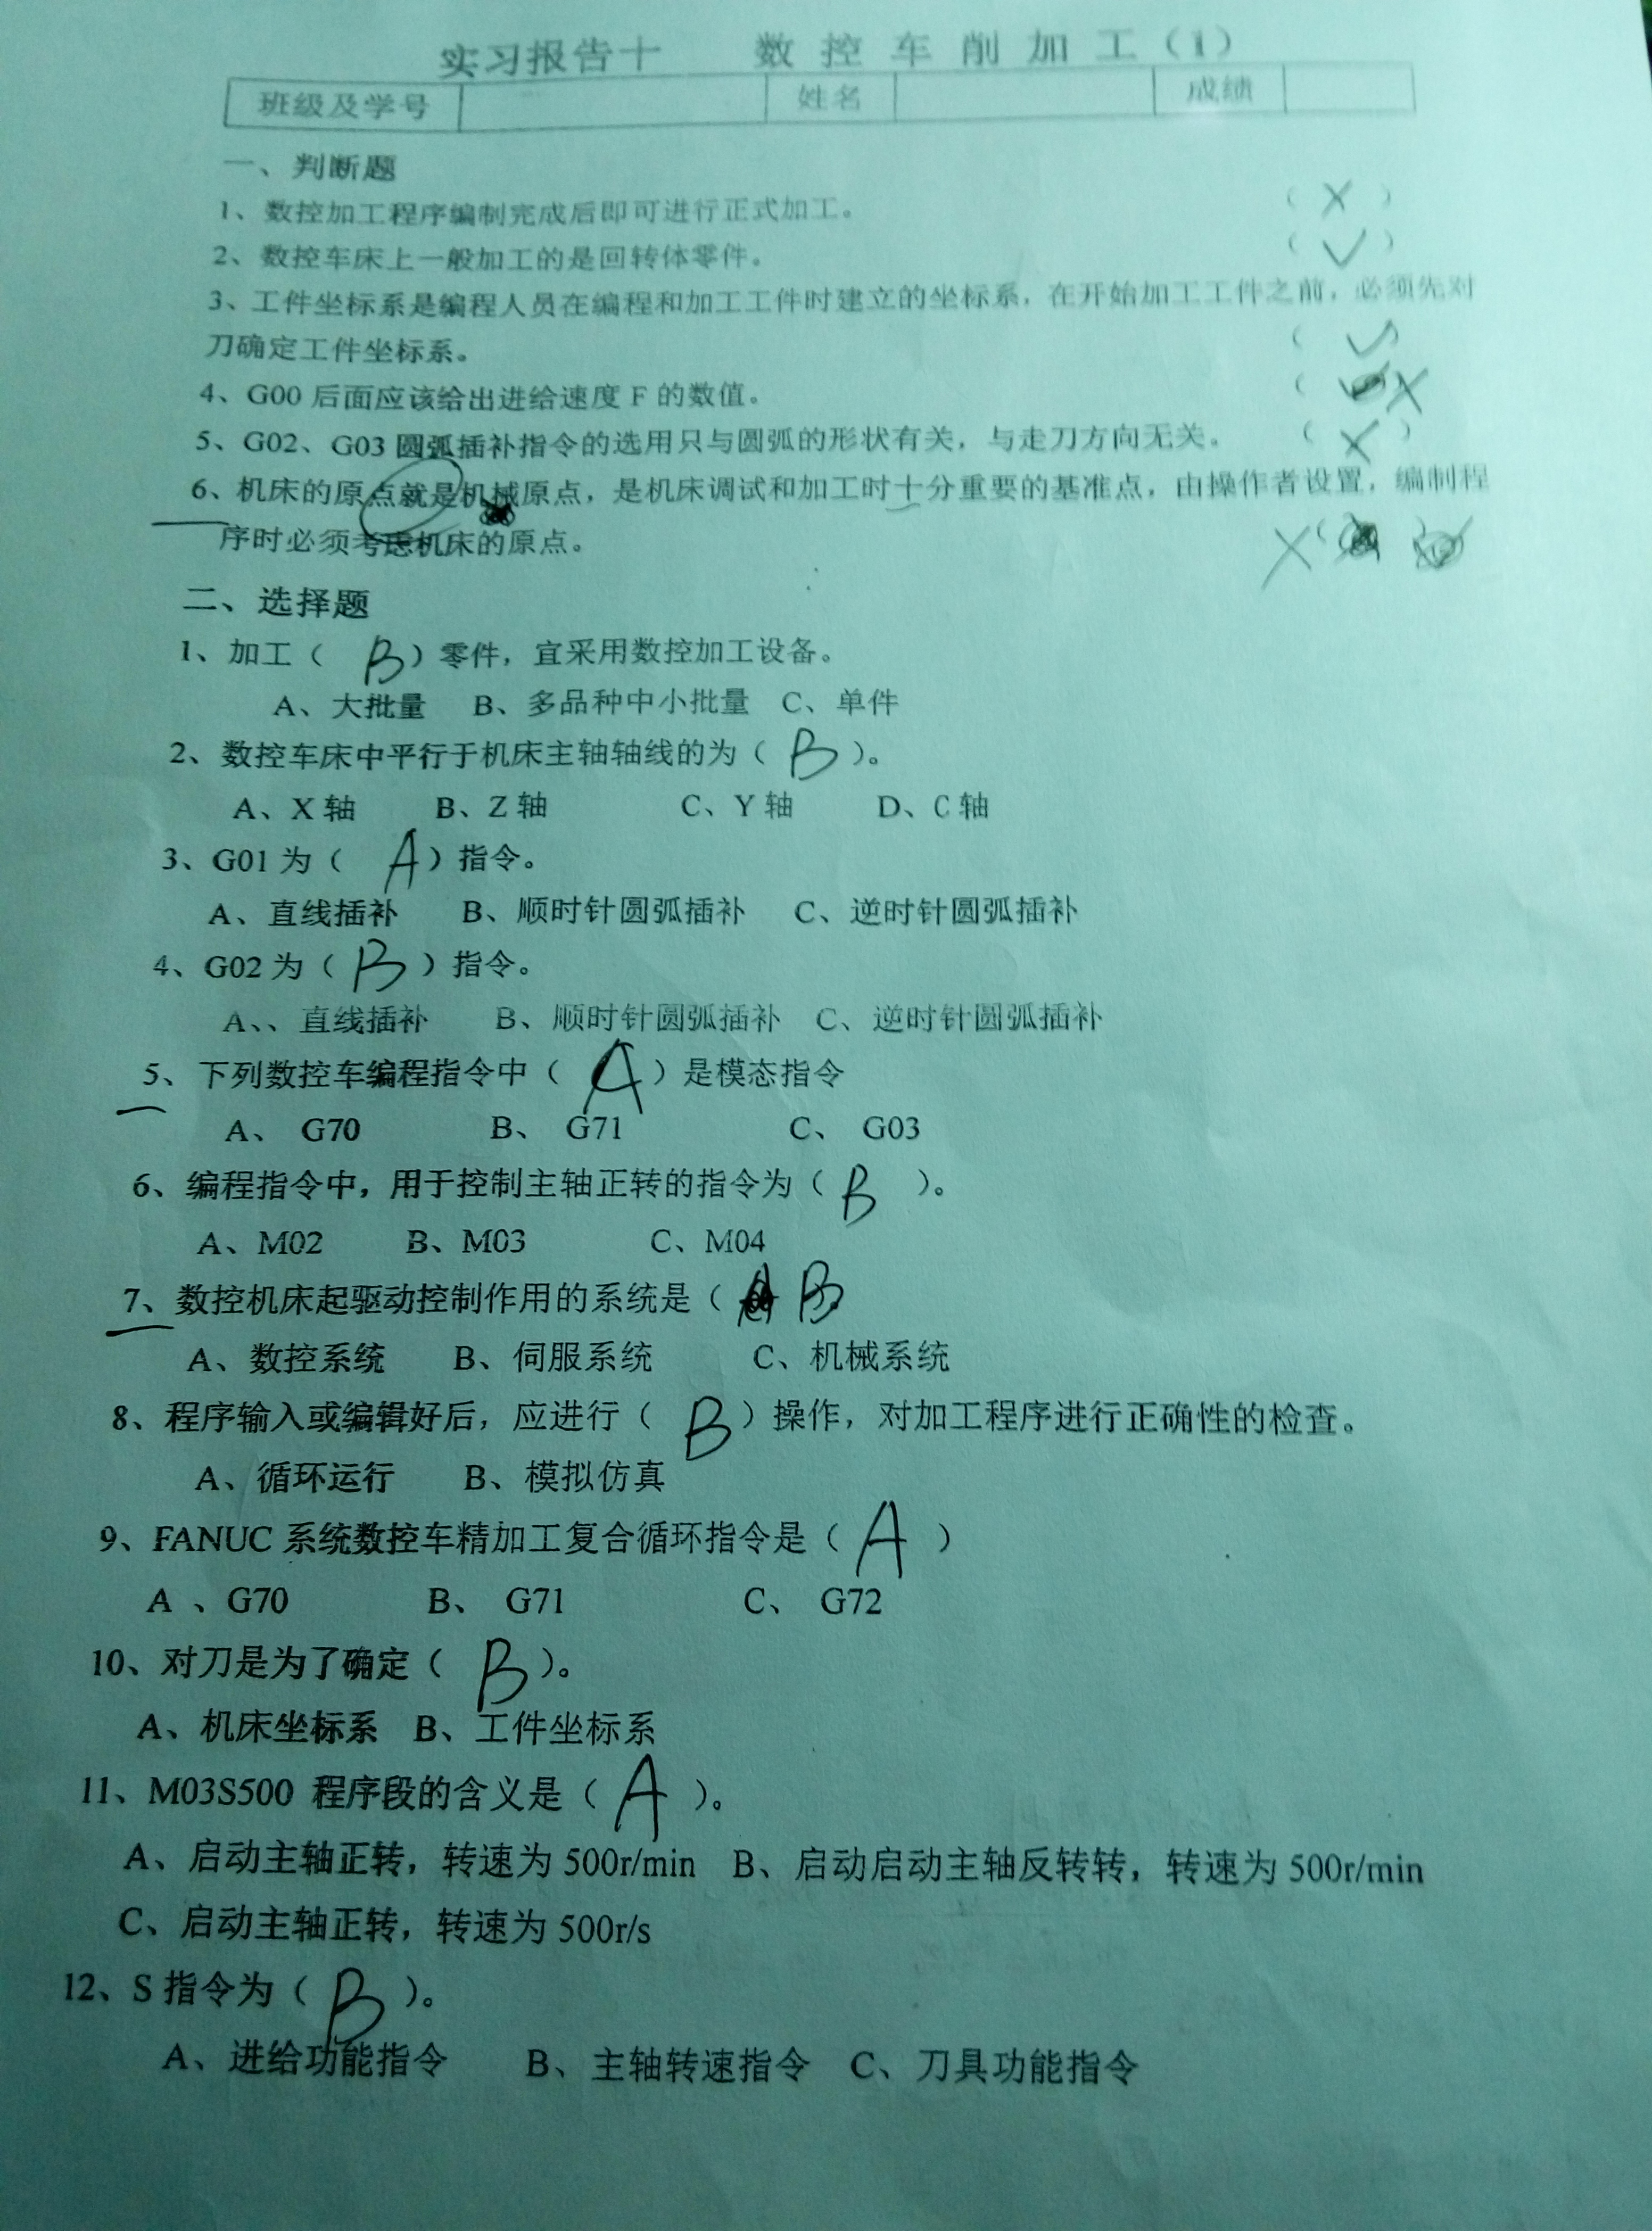 实习报告十 数控车削加工(1)
班级及学号 姓名 成绩
一、判断题
1、数控加工程序编制完成后即可进行正式加工。 (×)
2、数控车床上一般加工的是回转体零件。 (✓)
3、工件坐标系是编程人员在编程和加工工件时建立的坐标系，在开始加工工件之前，必须先对
刀确定工件坐标系。 (✓)
4、G00 后面应该给出进给速度 F 的数值。 ( ×
5、G02、G03 圆弧插补指令的选用只与圆弧的形状有关，与走刀方向无关。 (×)
6、机床的原点就是机械原点，是机床调试和加工时十分重要的基准点，由操作者设置，编制程
序时必须考虑机床的原点。 ×(
二、选择题
1、加工（ B ）零件，宜采用数控加工设备。
A、大批量 B、多品种中小批量 C、单件
2、数控车床中平行于机床主轴轴线的为（ B ）。
A、X 轴 B、Z 轴 C、Y 轴 D、C 轴
3、G01 为（ A ）指令。
A、直线插补 B、顺时针圆弧插补 C、逆时针圆弧插补
4、G02 为（ B ）指令。
A、、直线插补 B、顺时针圆弧插补 C、逆时针圆弧插补
5、下列数控车编程指令中（ A ）是模态指令
A、 G70 B、 G71 C、 G03
6、编程指令中，用于控制主轴正转的指令为（ B ）。
A、M02 B、M03 C、M04
7、数控机床起驱动控制作用的系统是（ B
A、数控系统 B、伺服系统 C、机械系统
8、程序输入或编辑好后，应进行（ B ）操作，对加工程序进行正确性的检查。
A、循环运行 B、模拟仿真
9、FANUC 系统数控车精加工复合循环指令是（ A ）
A 、G70 B、 G71 C、 G72
10、对刀是为了确定（ B ）。
A、机床坐标系 B、工件坐标系
11、M03S500 程序段的含义是（ A ）。
A、启动主轴正转，转速为 500r/min B、启动启动主轴反转转，转速为 500r/min
C、启动主轴正转，转速为 500r/s
12、S 指令为（ B ）。
A、进给功能指令 B、主轴转速指令 C、刀具功能指令